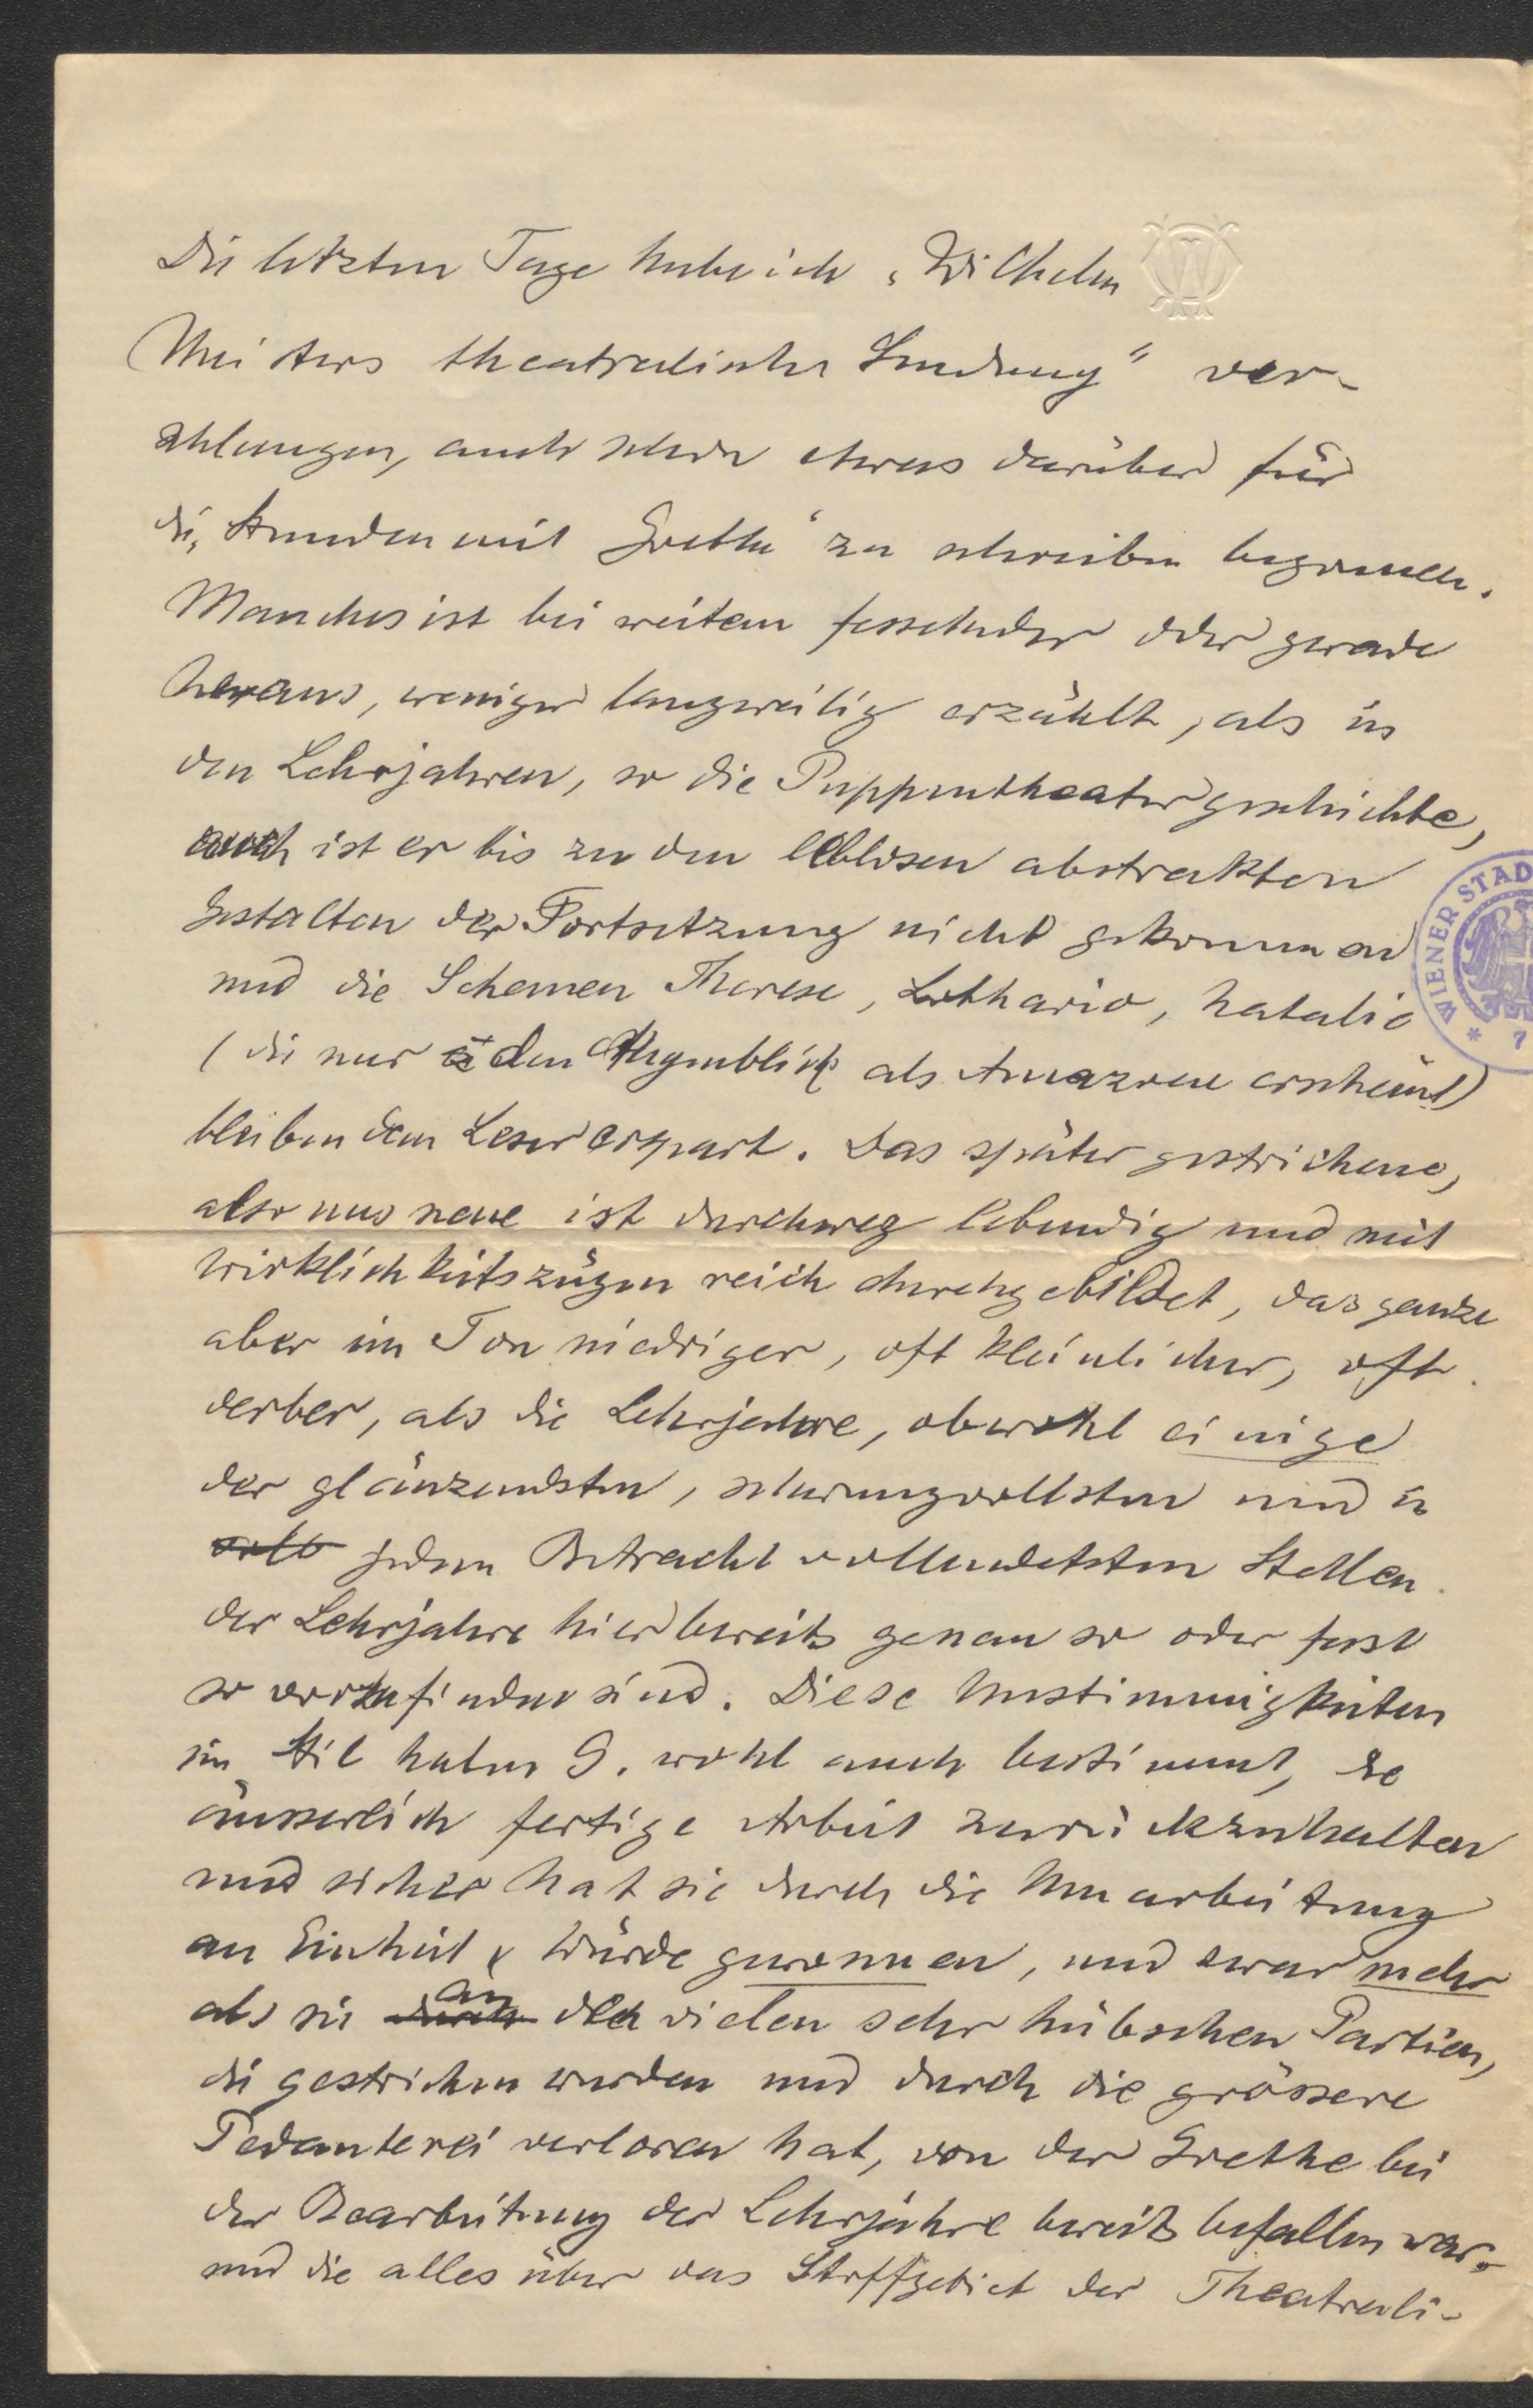 Die letzten Tage habe ich „Wilhelm
Meisters theatralische Sendung" ver-
schlungen, auch schon etwas darüber für
die „Stunden mit Goethe" zu schreiben begonnen.
Manches ist bei weitem fesselnder oder gerade
heraus, weniger langweilig erzählt, als in
den Lehrjahren, so die Puppentheatergeschichte,
auch ist er bis zu den leblosen abstrakten
Gestalten der Fortsetzung nicht gekommen
und die Schemen Therese, Lothario, Natalie
(die nur den Augenblick als Amazone erscheint)
bleiben dem Leser erspart. Das später gestrichene,
also uns neue ist durchweg lebendig und mit
Wirklichkeitszügen reich durchgebildet, das ganze
aber im Ton niedriger, oft kleinlicher, oft
derber, als die Lehrjahre, obwohl einige
der glänzendsten, schwungvollsten und in
jedem Betracht vollendetsten Stellen
der Lehrjahre hier bereits genau so oder fast
so vorzufinden sind. Diese Unstimmigkeiten
im Stil haben G. wohl auch bestimmt, die
äusserlich fertige Arbeit zurückzuhalten
und sicher hat sie durch die Umarbeitung
an Einheit & Würde gewonnen, und zwar mehr
als sie an den vielen sehr hübschen Partien,
die gestrichen wurden und durch die grössere
Pedanterei verloren hat, von der Goethe bei
der Bearbeitung der Lehrjahre bereits befallen war
und die alles über das Stoffgebiet der Theatrali-
WIENER STAD
7